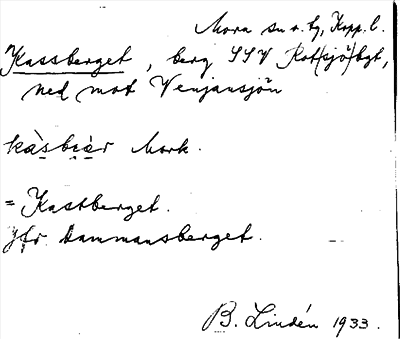 Mora sn o. tg, Kopp. l.
Kassberget, berg SSV Rot(sjö)bgt,
ned mot Venjansjön
kàsbɛ̀r Mork.
= Kastberget.
jfr Dammansberget.
B. Lindén 1933.